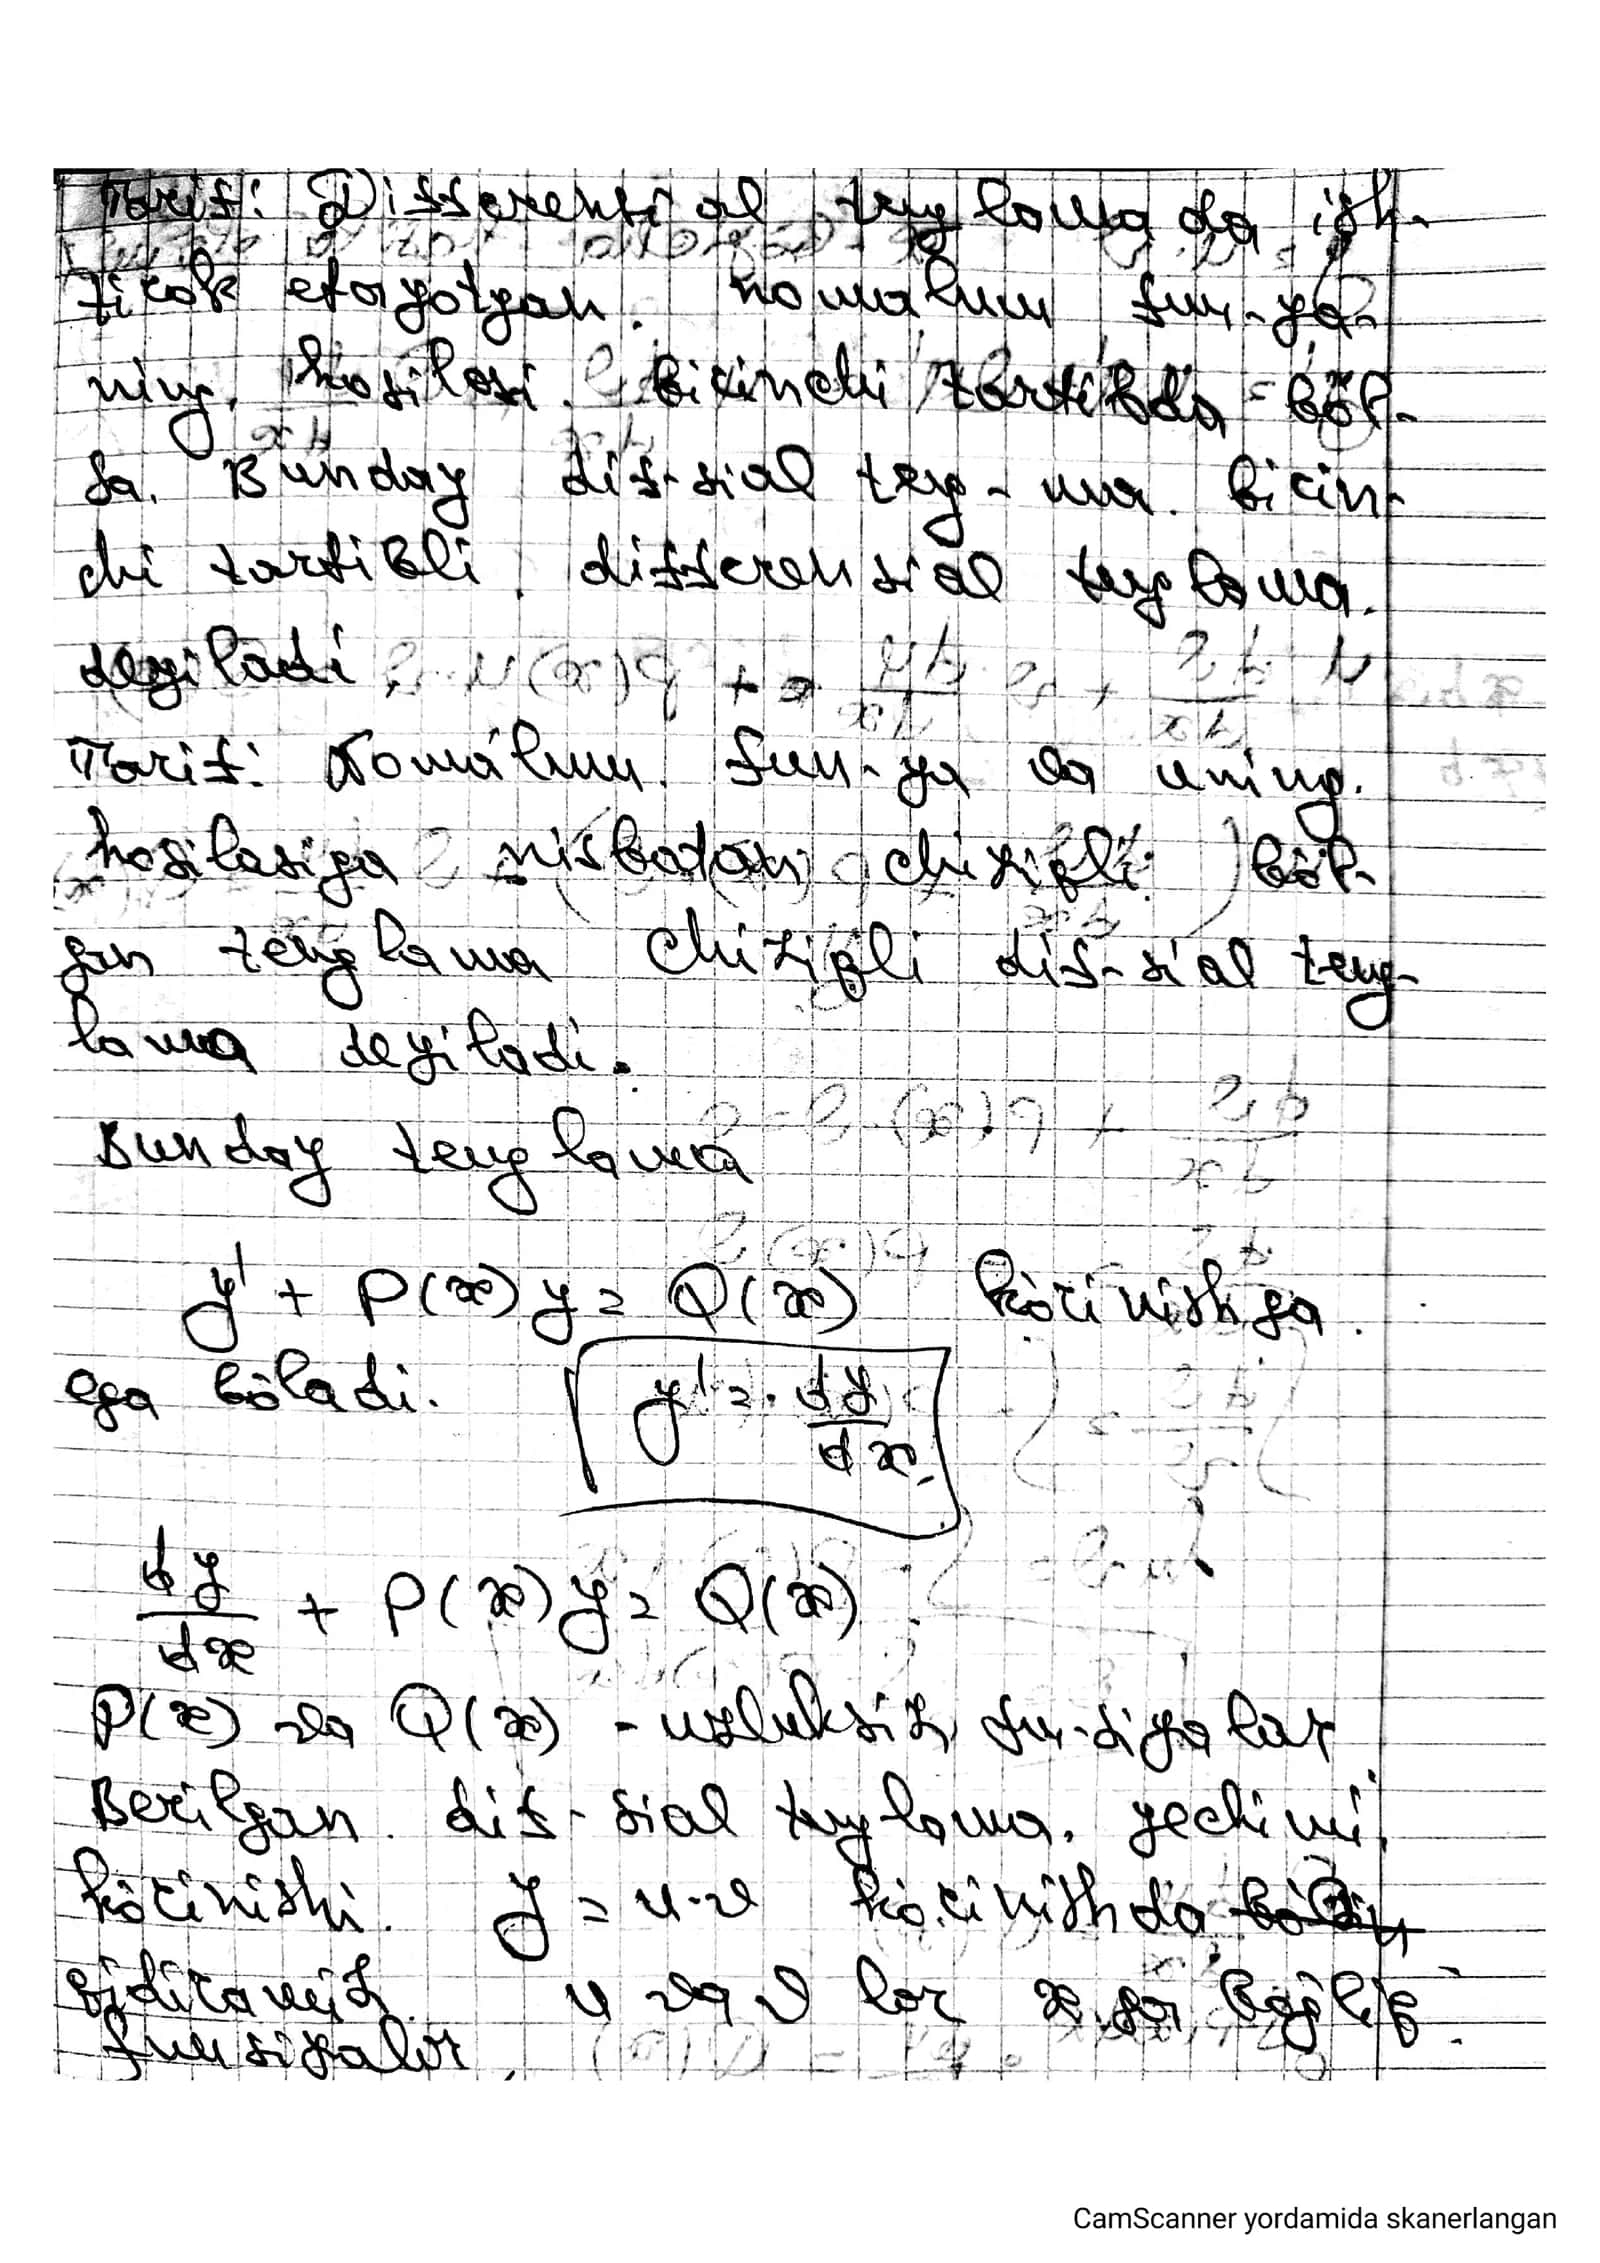 Tarif: Differensial tenglamada ish-
tirok etayotgan. nomalum fun-ya-
ning. hosilasi. birinchi tartibda böl-
sa. Bunday dif-sial teng-ma. birin-
chi tartibli. differensial tenglama.
deyiladi.
Tarif: Nomálum. fun-ya va uning.
hosilasiga nisbatan chiziqli böl-
gan tenglama chiziqli dif-sial teng-
lama deyiladi.
Bunday tenglama
y' + P(x)y = Q(x) körinishga.
ega böladi. y' = dy/dx
dy/dx + P(x)y = Q(x).
P(x) va Q(x) - uzluksiz fu-siyalar
Berilgan. dif-sial tenglama. yechimi.
körinishi. y = u·v körinishda
qidiramiz. u va v lar x ga bog'liq.
funsiyalar.
CamScanner yordamida skanerlangan